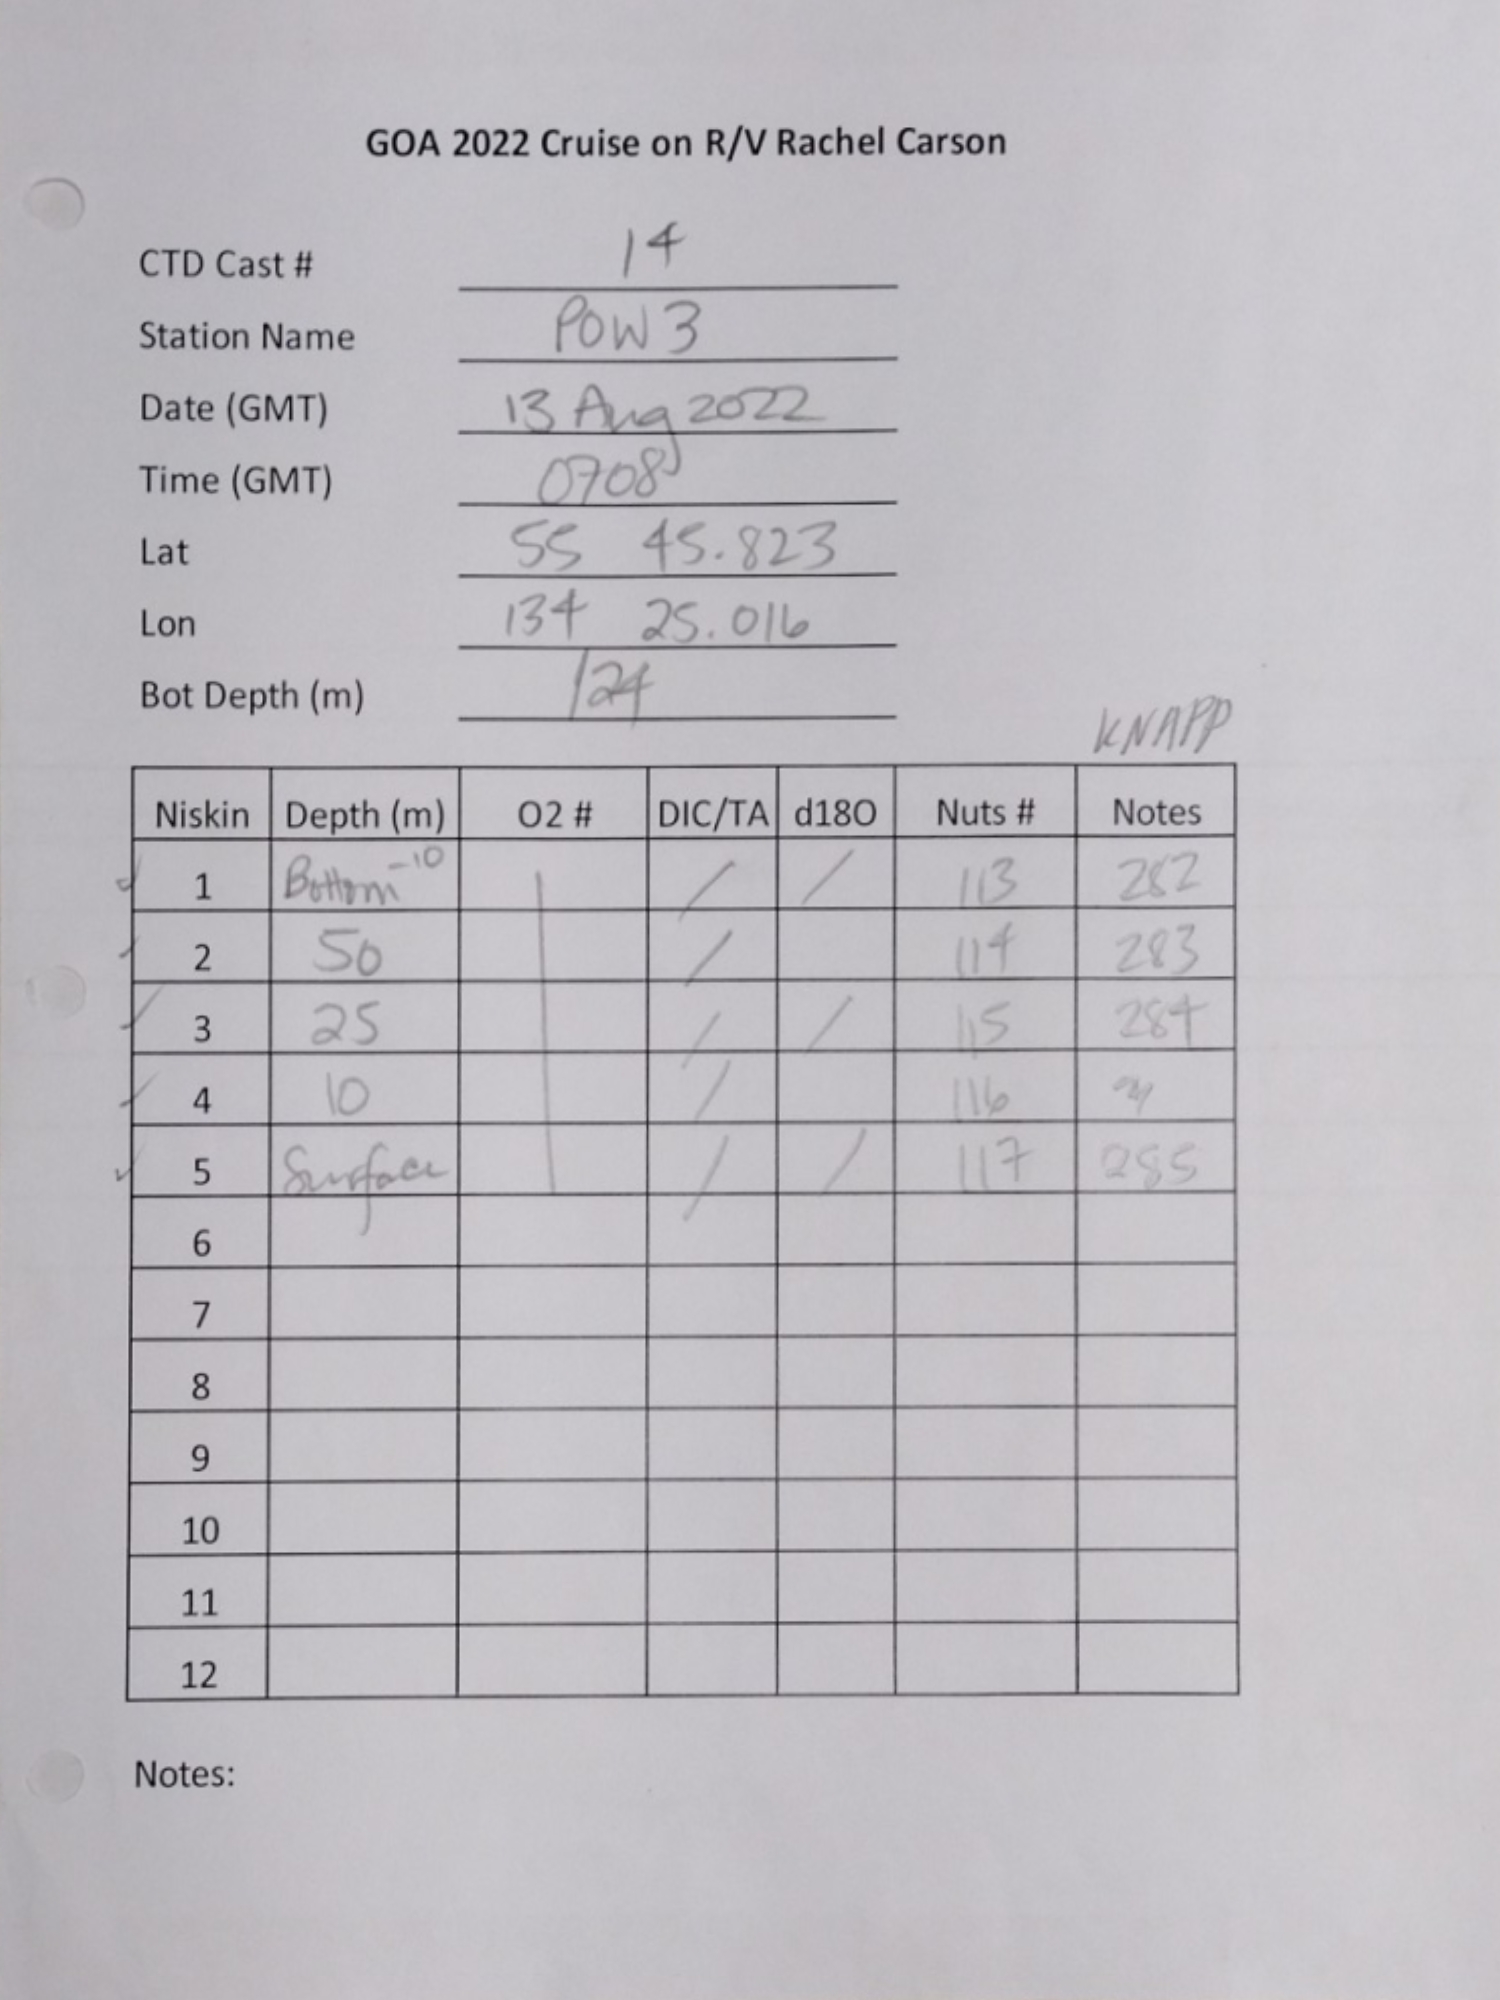 GOA 2022 Cruise on R/V Rachel Carson
CTD Cast # 14
Station Name POW 3
Date (GMT) 13 Aug 2022
Time (GMT) 0708
Lat 55 45.823
Lon 134 25.016
Bot Depth (m) 124
KNAPP
Niskin Depth (m) O2 # DIC/TA d18O Nuts # Notes
1 Bottom -10 / / 113 282
2 50 / 114 283
3 25 / / 115 284
4 10 / 116
5 Surface / / 117 285
6
7
8
9
10
11
12
Notes: